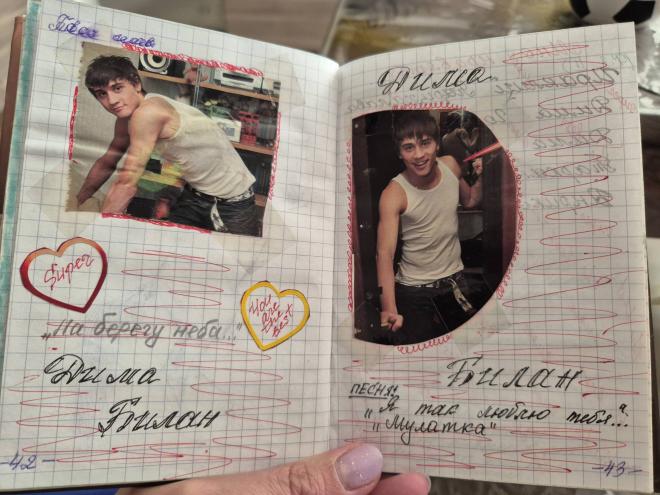 Super
You
are
the
best
„На берегу неба..."
Дима
Билан
-42-
Дима
Билан
ПЕСНЯ:
„Я так люблю тебя..."
„Мулатка"
-43-